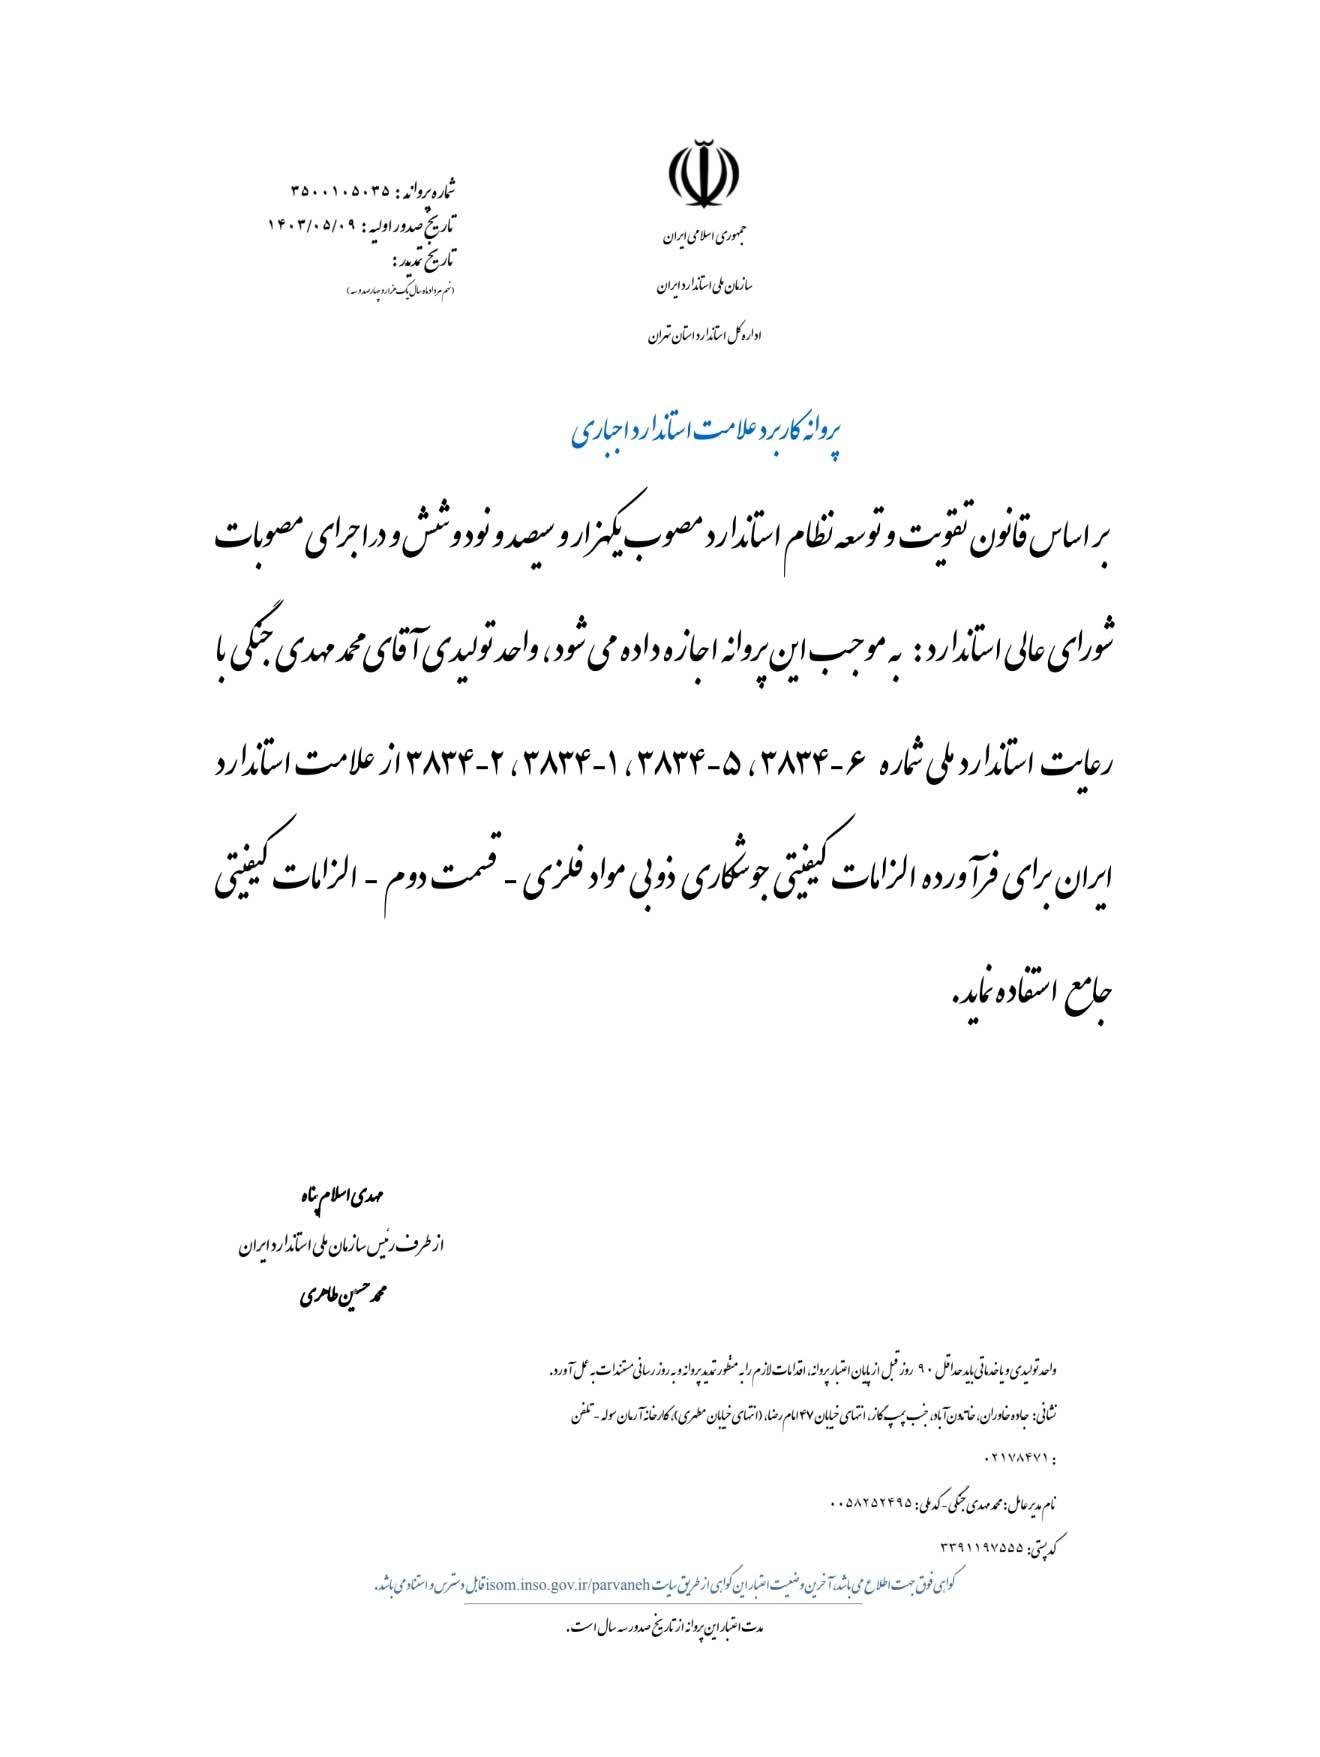 جمهوری اسلامی ایران
سازمان ملی استاندارد ایران
اداره کل استاندارد استان تهران
شماره پروانه : ۳۵۰۰۱۰۵۰۳۵
تاریخ صدور اولیه : ۱۴۰۳/۰۵/۰۹
تاریخ تمدید :
(نهم مرداد ماه سال یک هزار و چهارصد و سه)
پروانه کاربرد علامت استاندارد اجباری
بر اساس قانون تقویت و توسعه نظام استاندارد مصوب یکهزار و سیصد و نود و شش و در اجرای مصوبات
شورای عالی استاندارد : به موجب این پروانه اجازه داده می شود، واحد تولیدی آقای محمد مهدی جنگی با
رعایت استاندارد ملی شماره ۶-۳۸۳۴، ۵-۳۸۳۴، ۱-۳۸۳۴، ۲-۳۸۳۴ از علامت استاندارد
ایران برای فرآورده الزامات کیفیتی جوشکاری ذوبی مواد فلزی - قسمت دوم - الزامات کیفیتی
جامع استفاده نماید.
مهدی اسلام پناه
از طرف رئیس سازمان ملی استاندارد ایران
محمد حسین طاهری
واحد تولیدی و یا خدماتی باید حداقل ۹۰ روز قبل از پایان اعتبار پروانه، اقدامات لازم را به منظور تمدید پروانه و به روز رسانی مستندات به عمل آورد.
نشانی: جاده خاوران، خاتون آباد، جنب پمپ گاز، انتهای خیابان ۴۷ امام رضا، (انتهای خیابان مطهری)، کارخانه آرمان سوله - تلفن
: ۰۲۱۷۸۴۷۱
نام مدیر عامل : محمد مهدی جنگی - کد ملی : ۰۰۵۸۲۵۲۴۹۵
کد پستی: ۳۳۹۱۱۹۷۵۵۵
گواهی فوق جهت اطلاع می باشد، آخرین وضعیت اعتبار این گواهی از طریق سایت isom.inso.gov.ir/parvaneh قابل دسترس و استناد می باشد.
مدت اعتبار این پروانه از تاریخ صدور سه سال است.